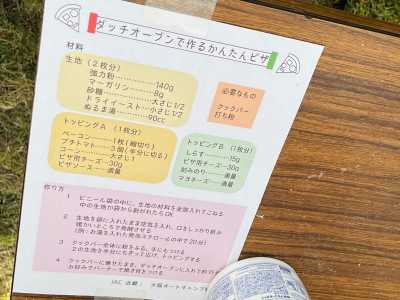 ダッチオーブンで作るかんたんピザ
材料
生地（２枚分）
強力粉………………140g
マーガリン…………8g
砂糖…………………大さじ1/2
ドライイースト…小さじ1/2
ぬるま湯……………90cc
必要なもの
クッパー
打ち粉
トッピングA （1枚分）
ベーコン…………1枚(細切り)
プチトマト………3個(半分に切る)
コーン……………大さじ1
ピザ用チーズ…30g
ピザソース………適量
トッピングB （1枚分）
しらす…………15g
ピザ用チーズ…30g
刻みのり………適量
マヨチーズ……適量
作り方
1 ビニール袋の中に、生地の材料を全部入れてこねる
中の生地が袋から剥がれたらOK
2 生地を袋に入れたまま空気を入れ、口をしっかり結び
暖かいところで発酵させる
（例：お湯を入れた発泡スチロールの中で20分）
3 クッパー全体に粉をふる、手にもつける
2の生地を半分にちぎって広げ、トッピングする
4 クッパーに乗せたまま、ダッチオーブンに入れて
お好みでバーナーで焼き目をつける